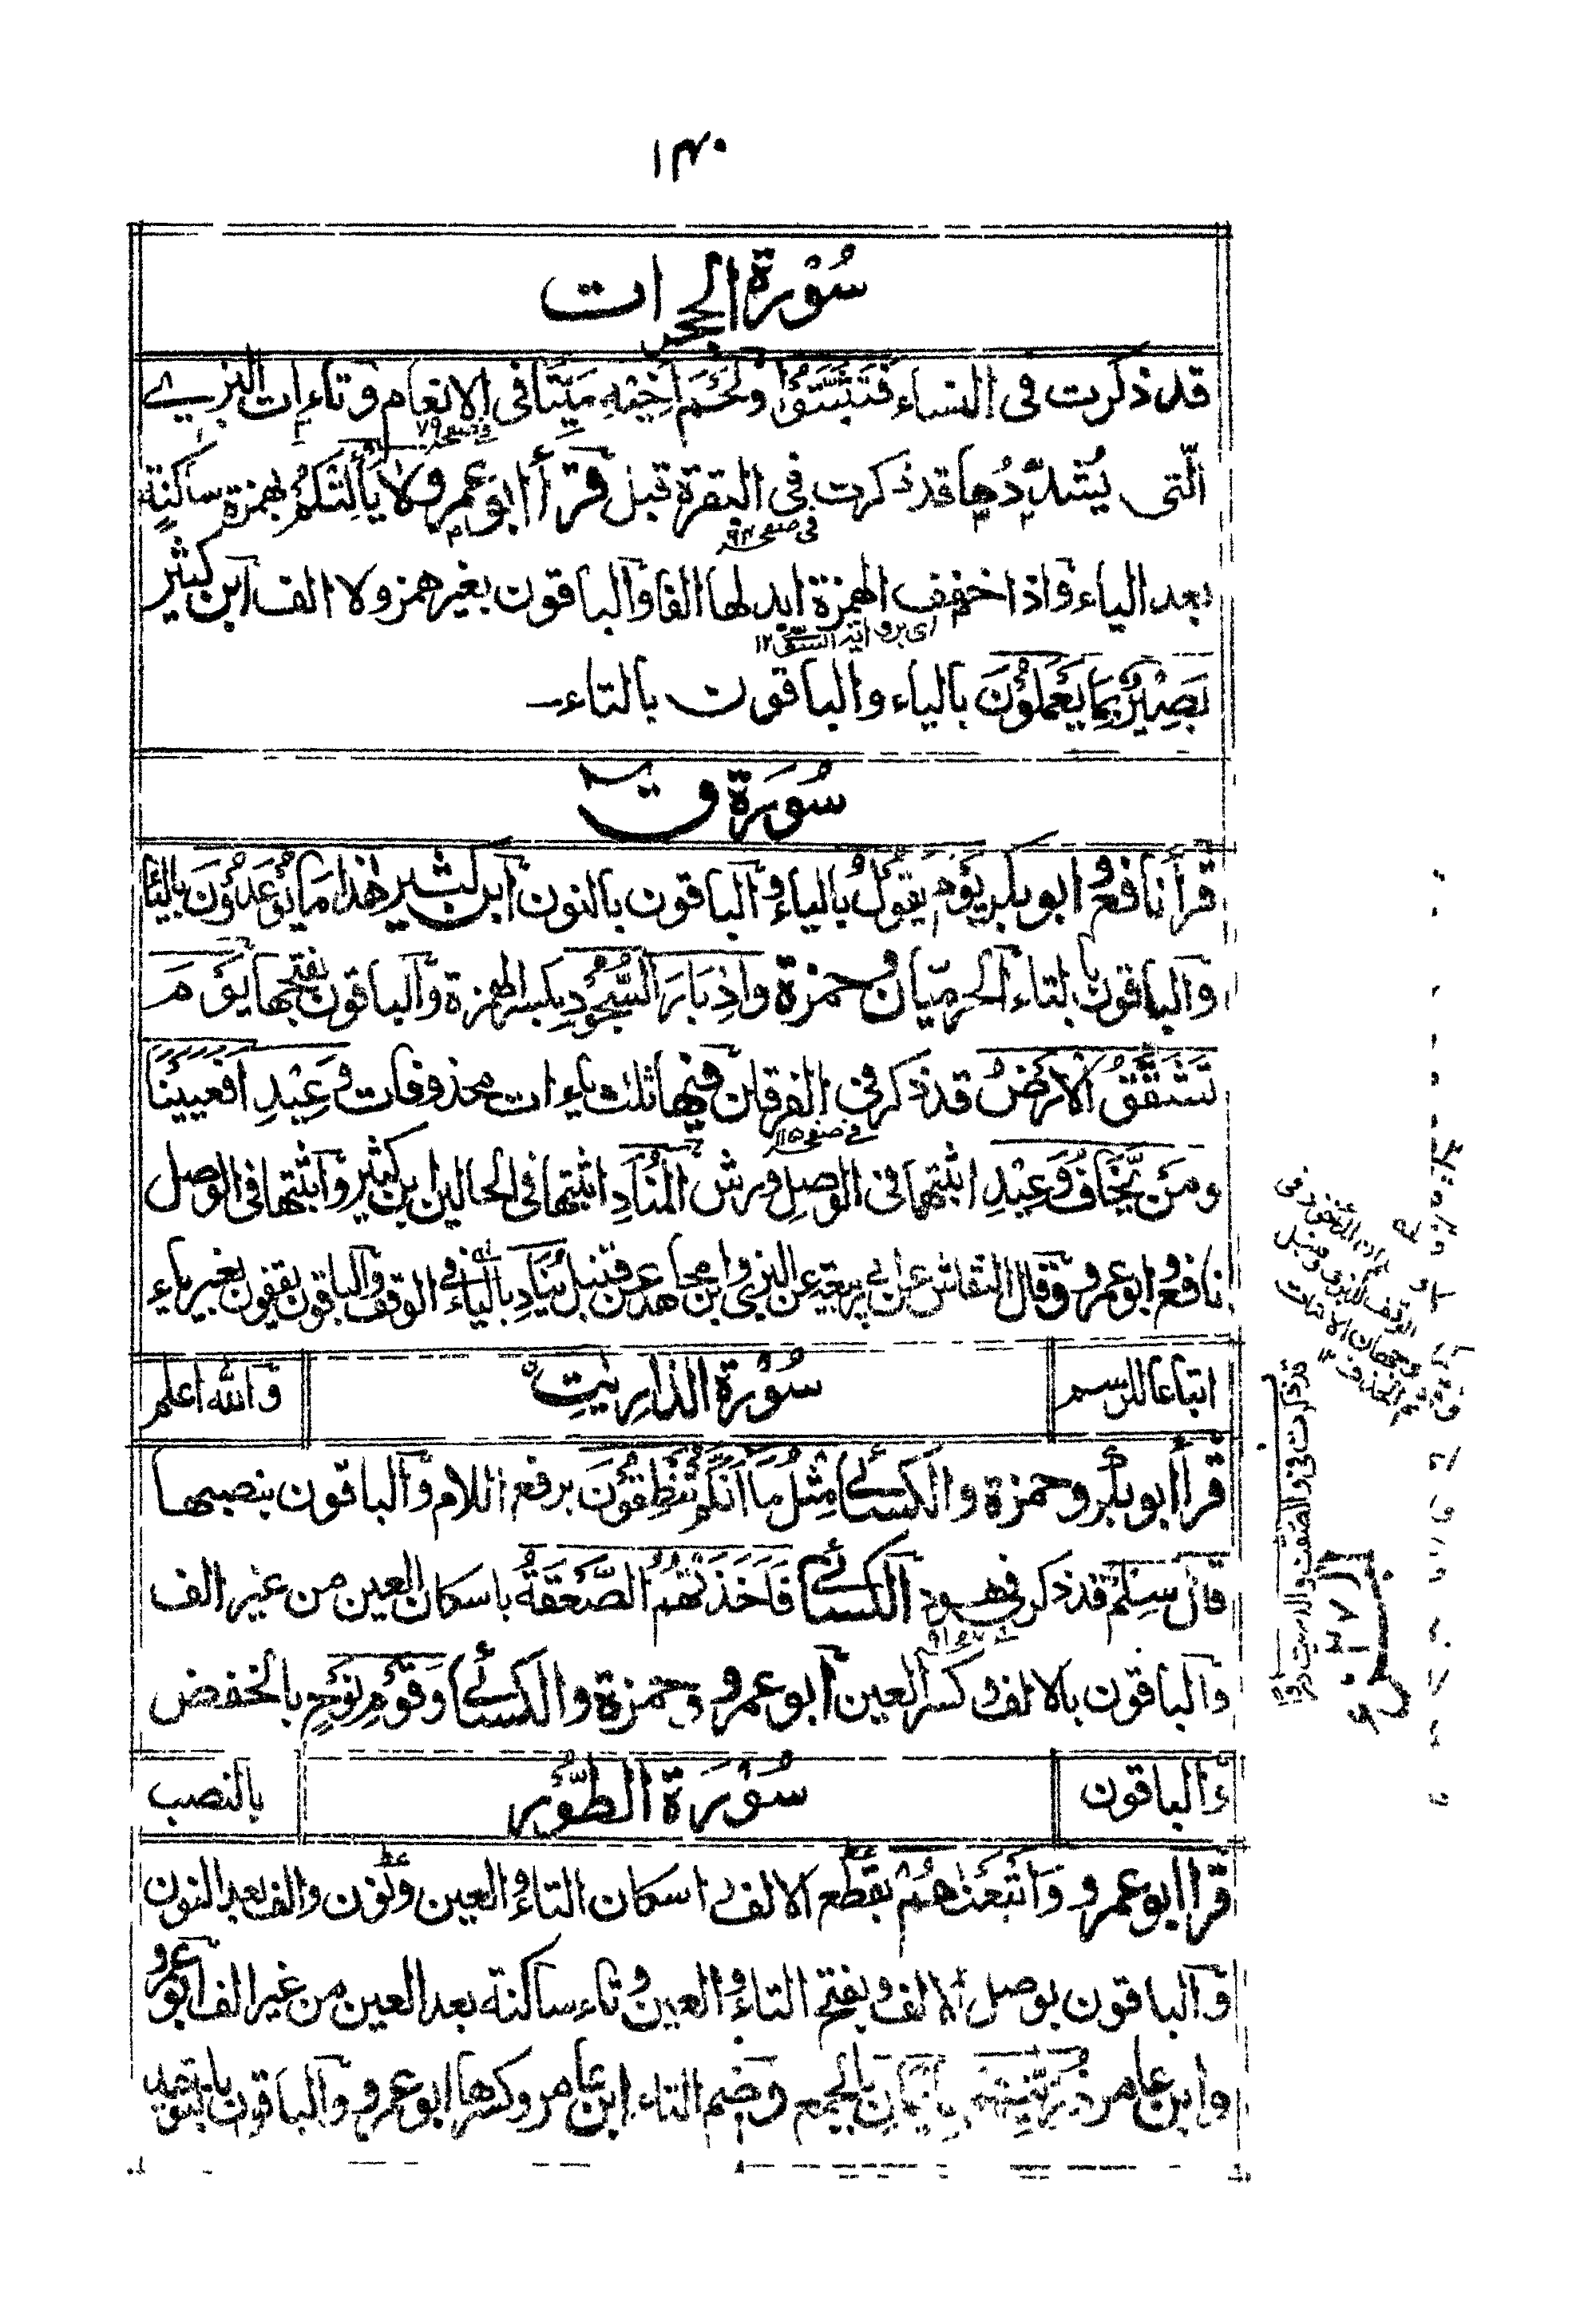 ١٣٠
سُوْرَة الحجرات
قد ذكرت فى النساء فَتَثَبَّتُوْا وَلَحْمَ اَخِيْهِ مَيْتًا فى الانعام وتاءات البزى
الّتى يُشدِّدُها قد ذكرت فى البقرة قبل قرأ ابو عمرو لَا يَأْلِتْكُمْ بهمزة ساكنةٍ
فى صفحه
بعد الياء واذا خفف الهمزة ابدلها الفا والباقون بغير همز ولا الف ابن كثير
اى برواية السوسى ١٢
بَصِيْرٌ بِمَا يَعْمَلُوْنَ بالياء والباقون بالتاء
سُوْرَة قٓ
قرأ نافع وابو بكر يَوْمَ يَقُوْلُ بالياء والباقون بالنون ابن كثير هٰذَا مَا يُوْعَدُوْنَ بالياء
والباقون بالتاء الحرميّان وحمزة وَاِدْبَارَ السُّجُوْدِ بكسر الهمزة والباقون بفتحها يَوْمَ
تَشَقَّقُ الْاَرْضُ قد ذكر فى الفرقان وفيها ثلث ياءات محذوفات وَعِيْدِ اَفَعَيِيْنَا
فى صفحه ١١٥
ومَنْ يَّخَافُ وَعِيْدِ اثبتهما فى الوصل ورش الْمُنَادِ اثبتها فى الحالين ابن كثير واثبتها فى الوصل
نافع وابو عمرو وقال النقاش عن ابى ربيعة عن البزى وابن مجاهد عن قنبل يُنَادِ بالياء فى الوقف والباقون يقفون بغير ياء
اتباعا للرسم سُوْرَة الذاريٰتِ والله اعلم
قرأ ابو بكر وحمزة والكسائى مِثْلُ مَا اَنَّكُمْ تَنْطِقُوْنَ برفع اللام والباقون بنصبها
قَالَ سِلْمٌ قد ذكر فى هود الكسائى فَاَخَذَتْهُمُ الصَّعْقَةُ باسكان العين من غير الف
والباقون بالالف وكسر العين ابو عمرو وحمزة والكسائى وَقَوْمِ نُوْحٍ بالخفض
والباقون سُوْرَة الطُّوْر بالنصب
قرا ابو عمرو وَاَتْبَعْنٰهُمْ بقطع الالف واسكان التاء والعين ونون والف بعد النون
والباقون بوصل الالف وبفتح التاء والعين وتاء ساكنة بعد العين من غير الف ابو عمرو
وابن عامر ذُرِّيّٰتِهِمْ بِاِيْمَانٍ بالجمع وضم التاء ابن عامر وكسرها ابو عمرو والباقون بالتوحيد